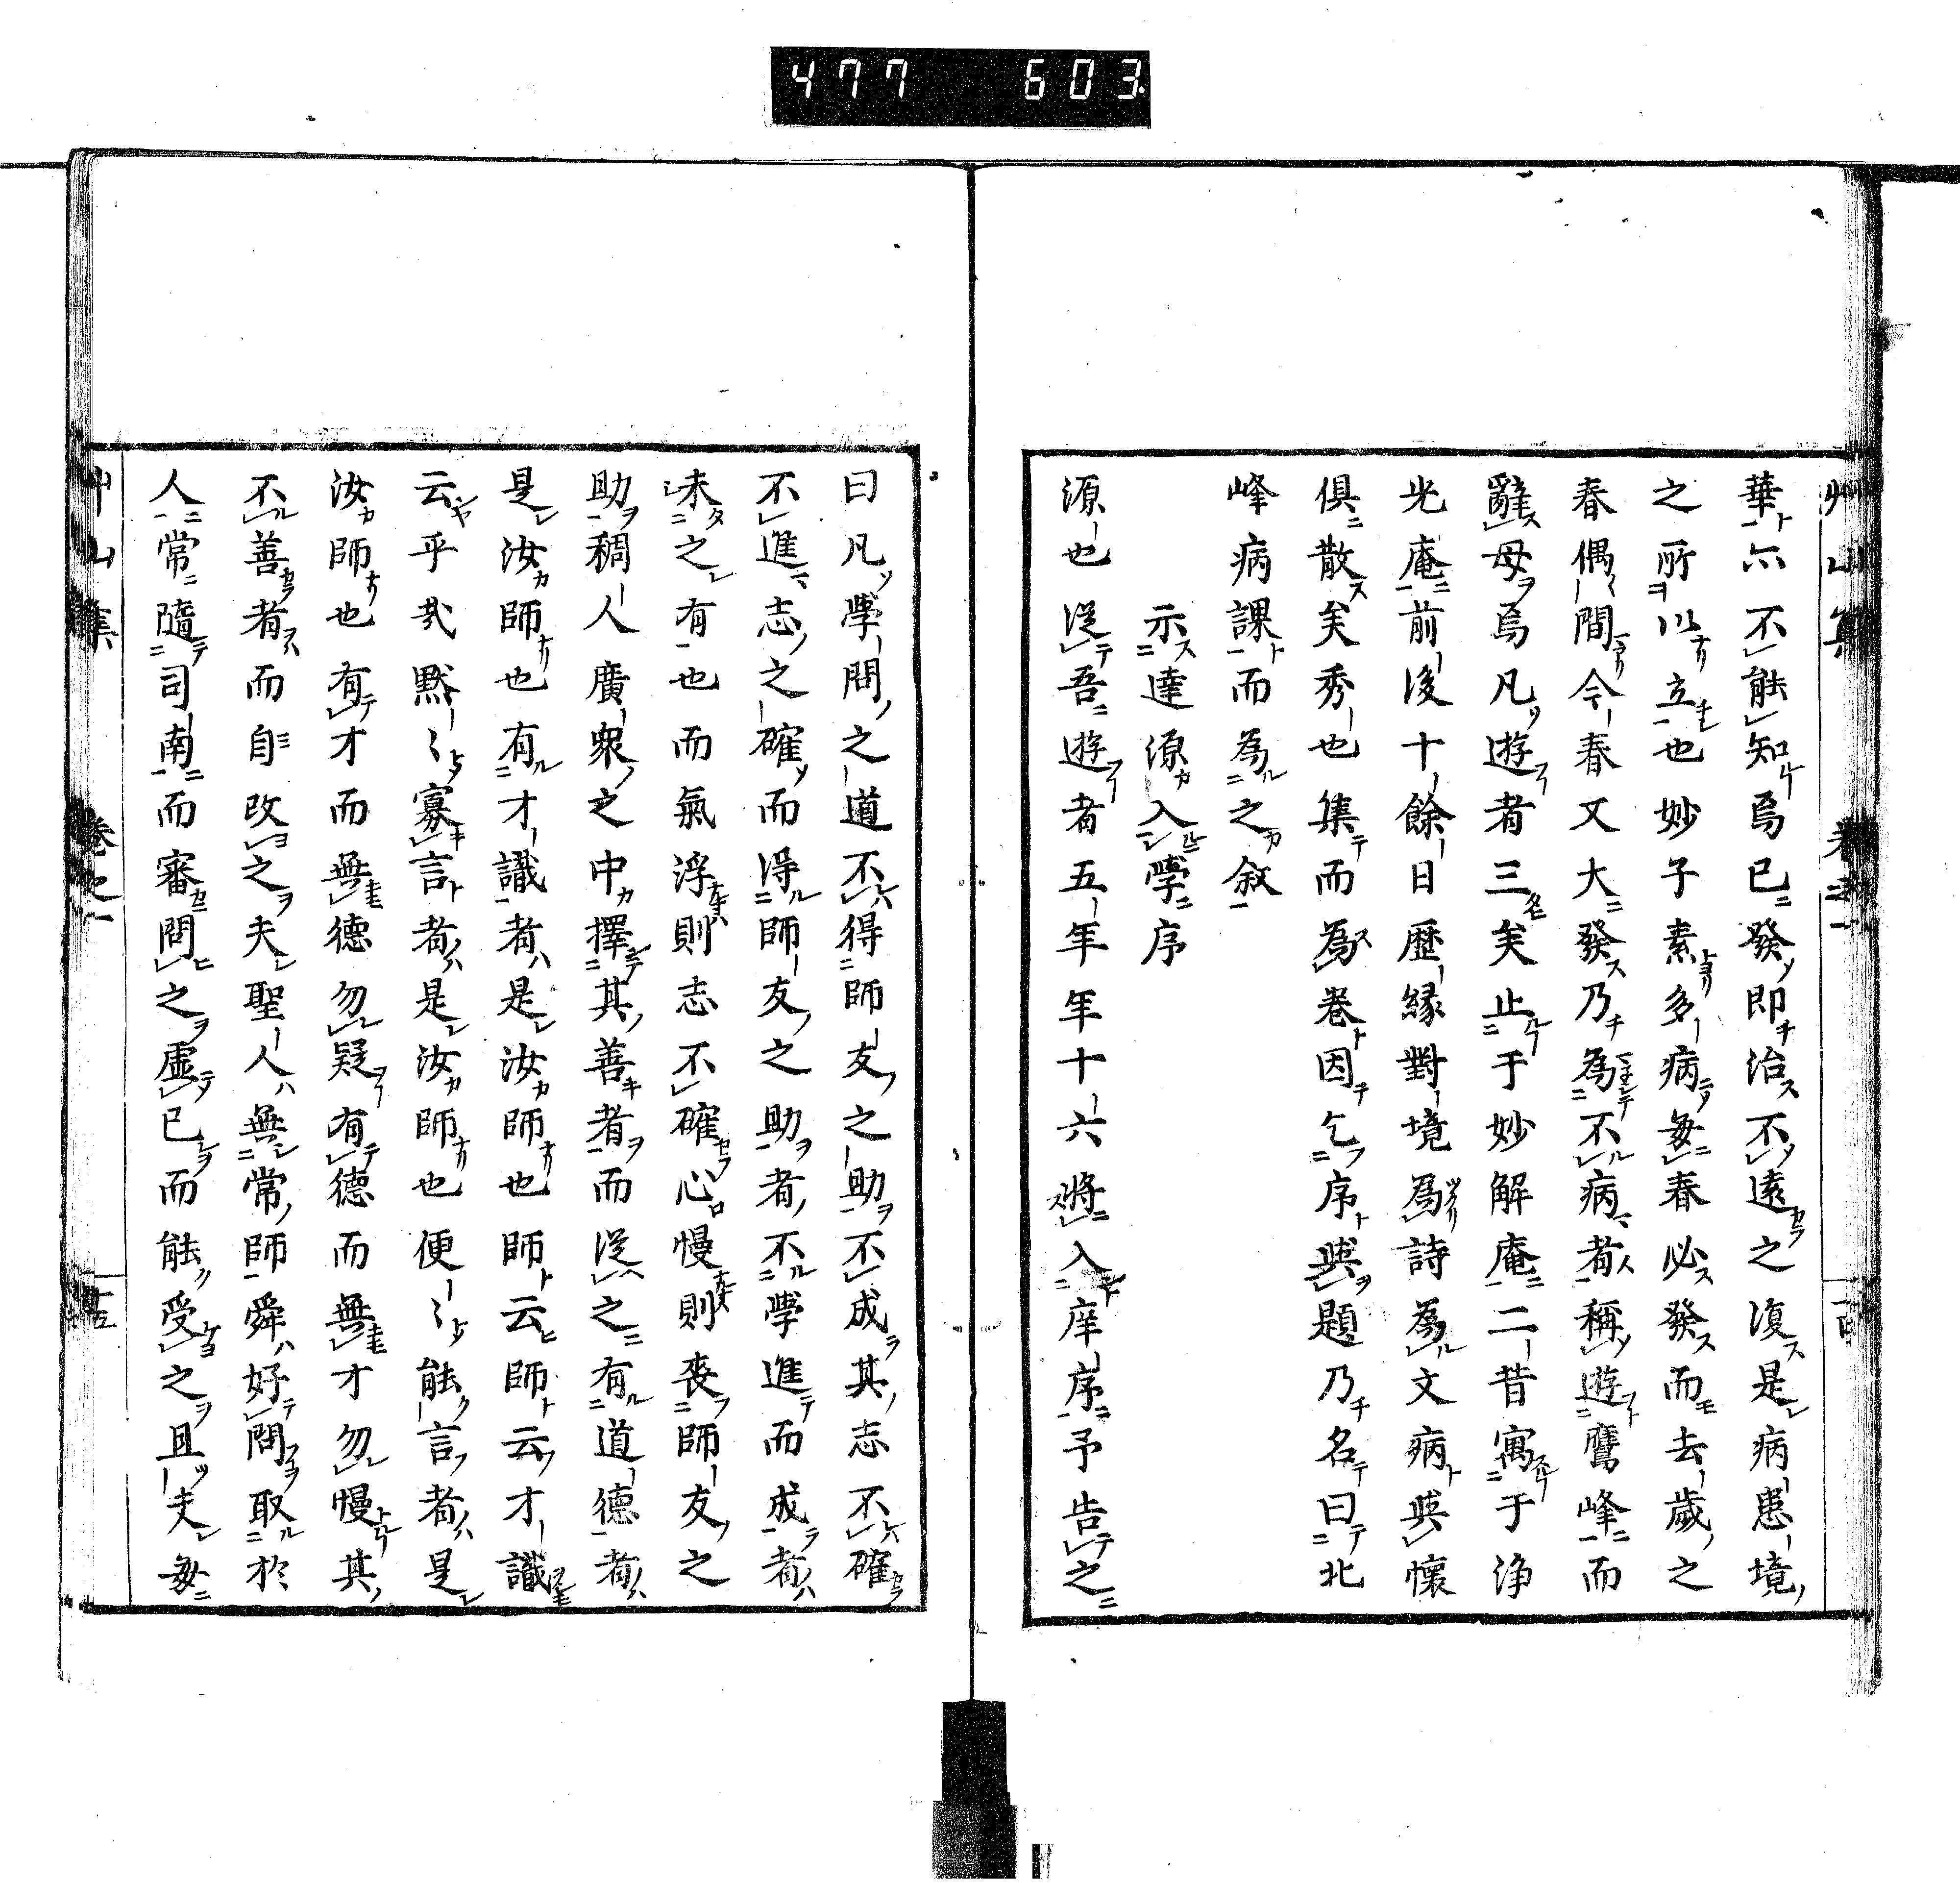 477 603
華六不能知焉已發即治不遠之復是病患境
之所以立也妙子素多病每春必發而去歲之
春偶間今春又大發乃為不病者稱遊鷹峰而
辭母焉凡遊者三矣止于妙解庵二昔寓于淨
光庵前後十餘日歷緣對境為詩為文病與懷
俱散矣秀也集而為卷因乞序與題乃名曰北
峰病課而為之敘
示達源入學序
源也從吾遊者五年年十六將入庠序予告之
曰凡學問之道不得師友之助不成其志不確
不進志之確而得師友之助者不學進而成者
未之有也而氣浮則志不確心慢則喪師友之
助稠人廣眾之中擇其善者而從之有道德者
是汝師也有才識者是汝師也師云師云才識
云乎哉默〻寡言者是汝師也便〻能言者是
汝師也有才而無德勿疑有德而無才勿慢其
不善者而自改之夫聖人無常師舜好問取於
人常隨司南而審問之虛已而能受之且夫每
艸山集 卷之一 十五